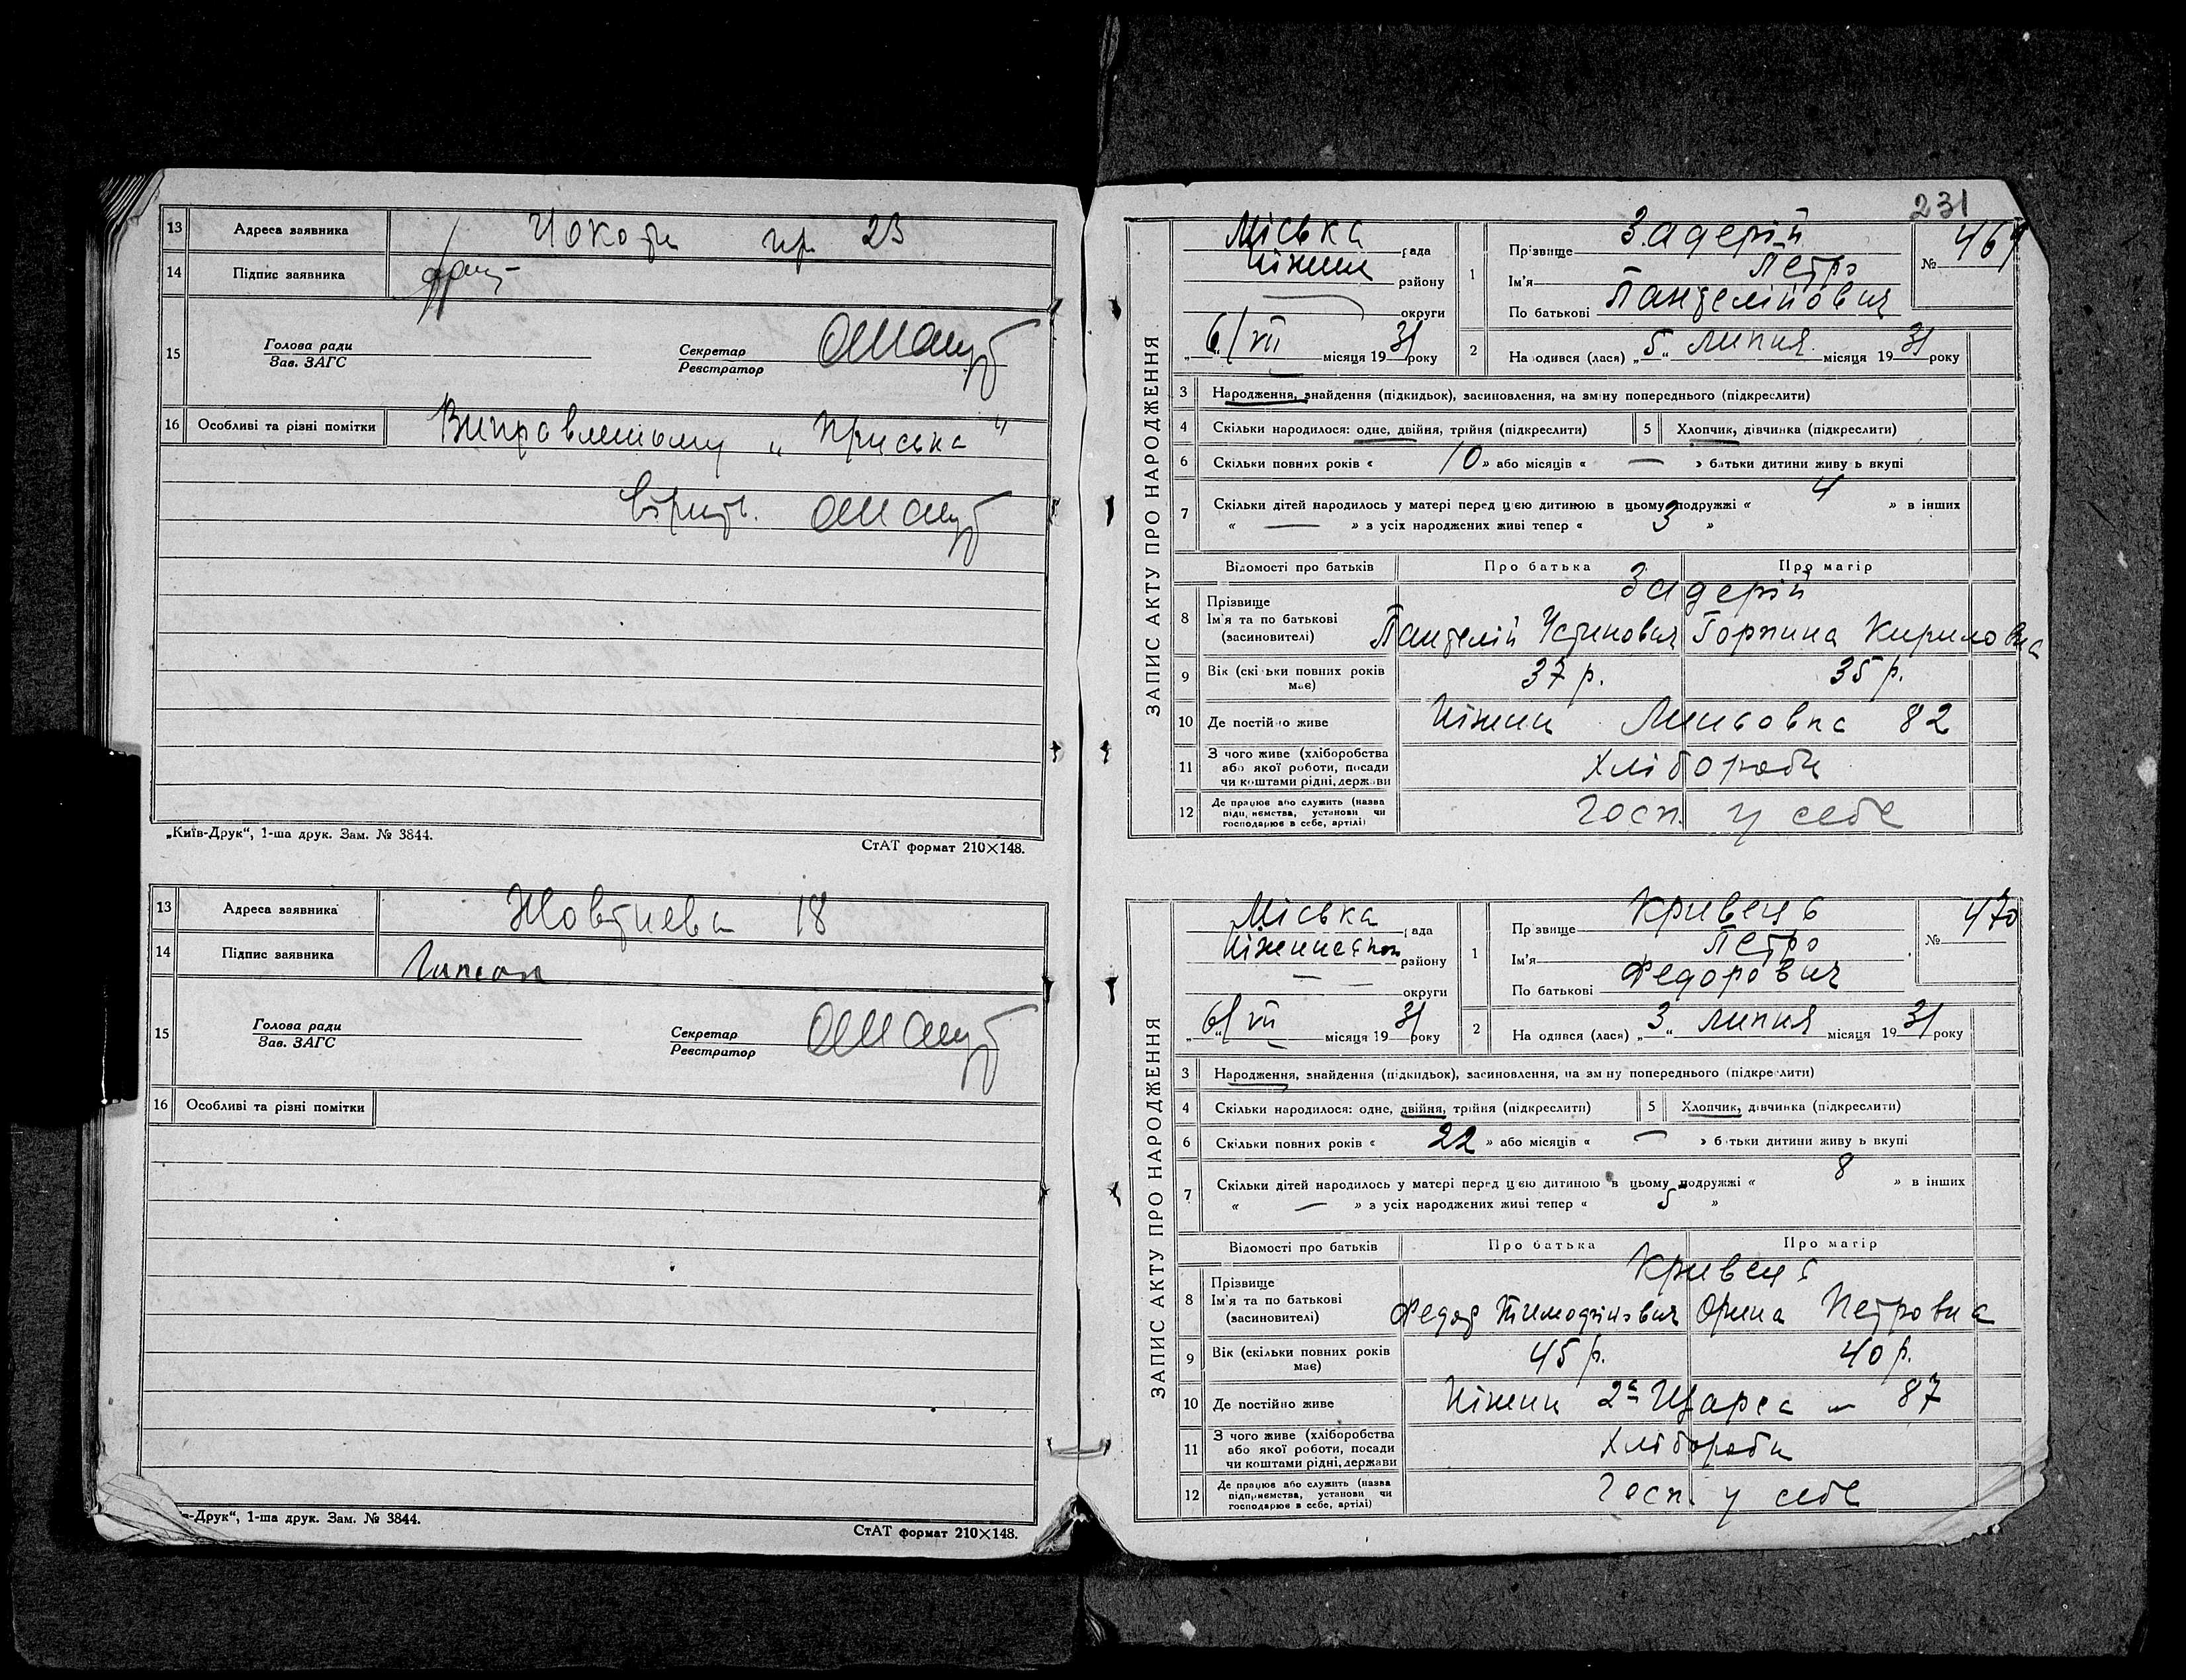 13 Адреса заявника пр. 23
14 Підпис заявника
15 Голова ради Секретар
Зав. ЗАГС Реєстратор
16 Особливі та різні помітки Виправленому „Приська“
вірить.
„Київ-Друк“, 1-ша друк. Зам. № 3844.
СтАТ формат 210×148.
13 Адреса заявника Жовтнева 18
14 Підпис заявника
15 Голова ради Секретар
Зав. ЗАГС Реєстратор
16 Особливі та різні помітки
в-Друк“, 1-ша друк. Зам. № 3844.
СтАТ формат 210×148.
231
ЗАПИС АКТУ ПРО НАРОДЖЕННЯ
Міська рада
Ніжин району
округи
„6“/VII місяця 1931 року
1 Прізвище Задерій
Ім'я Петро
По батькові Пантелійович
№ 469
2 На одився (лася) „5“ липня місяця 1931 року
3 Народження, знайдення (підкидьок), засиновлення, на зміну попереднього (підкреслити)
4 Скільки народилося: одне, двійня, трійня (підкреслити) 5 Хлопчик, дівчинка (підкреслити)
6 Скільки повних років « 10 » або місяців « — » батьки дитини живу ь вкупі
7 Скільки дітей народилось у матері перед цією дитиною в цьому подружжі « 4 » в інших
« — » з усіх народжених живі тепер « 3 »
Відомості про батьків Про батька Про матір
8 Прізвище Задерій
Ім'я та по батькові Пантелій Устинович Горпина Кириловна
(засновителі)
9 Вік (скі ьки повних років має) 37 р. 35 р.
10 Де постійно живе Ніжин 82
11 З чого живе (хліборобства Хлібороби
або якої роботи, посади
чи коштами рідні, держави
12 Де працює або служить (назва Госп. у себе
підприємства, установи чи
господарює в себе, артілі)
ЗАПИС АКТУ ПРО НАРОДЖЕННЯ
Міська рада
району
округи
„6“/VII місяця 1931 року
1 Прізвище Кривець
Ім'я Петро
По батькові Федорович
№ 470
2 На одився (лася) „3“ липня місяця 1931 року
3 Народження, знайдення (підкидьок), засиновлення, на зміну попереднього (підкреслити)
4 Скільки народилося: одне, двійня, трійня (підкреслити) 5 Хлопчик, дівчинка (підкреслити)
6 Скільки повних років « 22 » або місяців « — » батьки дитини живу ь вкупі
7 Скільки дітей народилось у матері перед цією дитиною в цьому подружжі « 8 » в інших
« — » з усіх народжених живі тепер « 5 »
Відомості про батьків Про батька Про матір
8 Прізвище Кривець
Ім'я та по батькові Федор Тимофійович Орина Петровна
(засновителі)
9 Вік (скільки повних років має) 45 р. 40 р.
10 Де постійно живе Ніжин 87
11 З чого живе (хліборобства Хлібороби
або якої роботи, посади
чи коштами рідні, держави
12 Де працює або служить (назва Госп. у себе
підприємства, установи чи
господарює в себе, артілі)